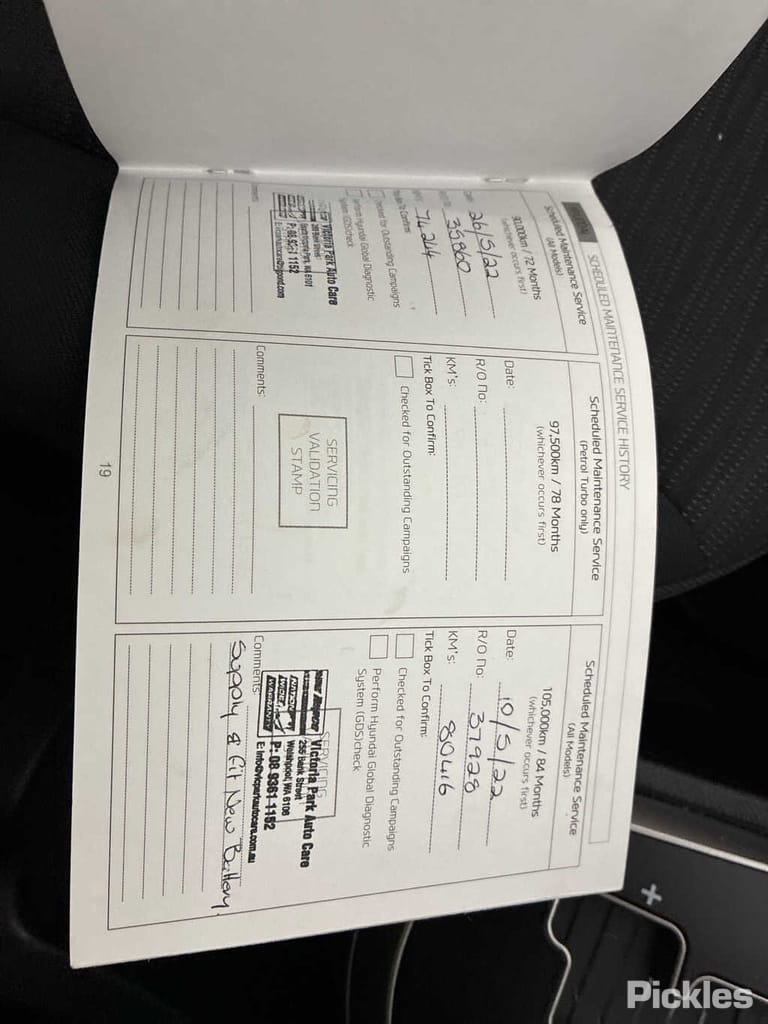 SCHEDULED MAINTENANCE SERVICE HISTORY
Scheduled Maintenance Service
(All Models)
90,000km / 72 Months
(whichever occurs first)
26/5/22
35860
74244
Tick Box To Confirm:
Checked for Outstanding Campaigns
Perform Hyundai Global Diagnostic
System (GDS)check
Victoria Park Auto Care
Scheduled Maintenance Service
(Petrol Turbo only)
97,500km / 78 Months
(whichever occurs first)
Date:
R/O No:
KM's:
Tick Box To Confirm:
Checked for Outstanding Campaigns
SERVICING
VALIDATION
STAMP
Comments:
Scheduled Maintenance Service
(All Models)
105,000km / 84 Months
(whichever occurs first)
Date: 10/5/22
R/O No: 37928
KM's: 80416
Tick Box To Confirm:
Checked for Outstanding Campaigns
Perform Hyundai Global Diagnostic
System (GDS)check
SERVICING
Victoria Park Auto Care
Welshpool, WA 6106
P: 08 9361 1152
E: info@vicparkautocare.com.au
NATION
WIDE
WARRANTY
Comments:
Supply & Fit New Battery.
19
+
Pickles